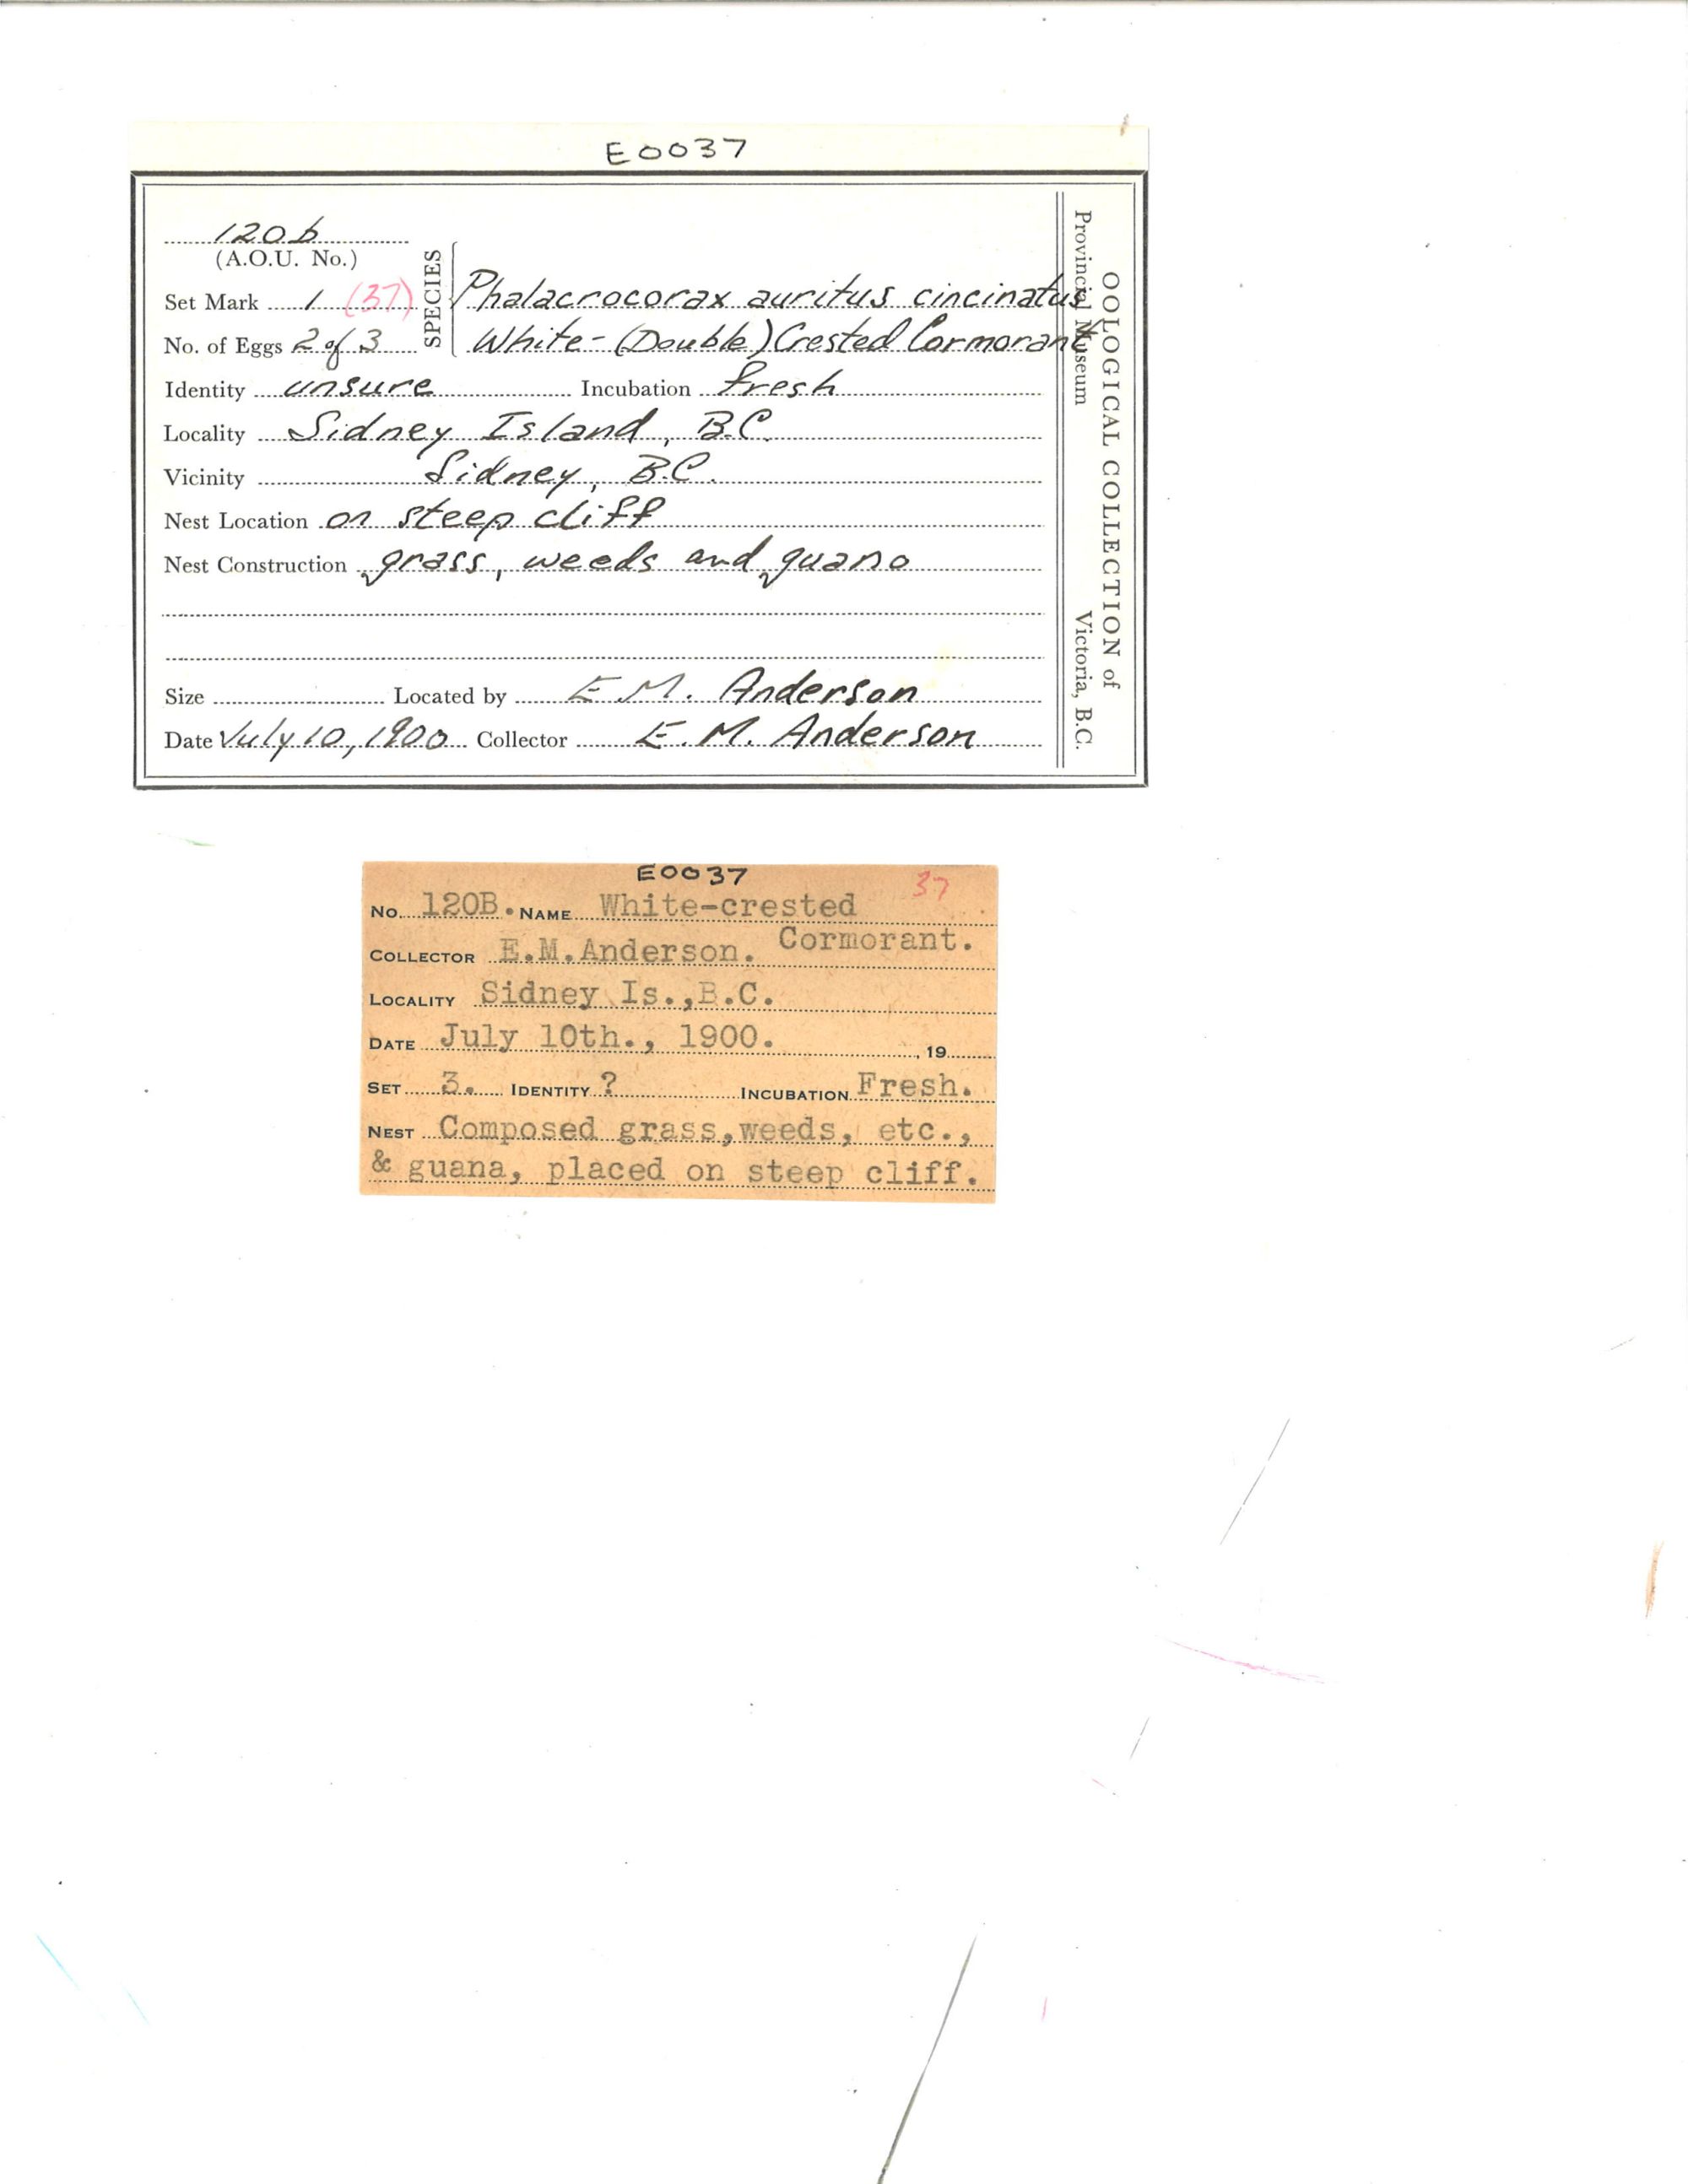 E0037
120b
(A.O.U. No.)
Set Mark 1 (37)
No. of Eggs 2 of 3
SPECIES
Phalacrocorax auritus cincinatus
White-(Double) Crested Cormorant
Identity unsure Incubation fresh
Locality Sidney Island, B.C.
Vicinity Sidney, B.C.
Nest Location on steep cliff
Nest Construction grass, weeds and guano
Size Located by E.M. Anderson
Date July 10, 1900 Collector E.M. Anderson
OOLOGICAL COLLECTION of
Provincial Museum Victoria, B.C.
E0037 37
No. 120B. NAME White-crested
Cormorant.
COLLECTOR E.M.Anderson.
LOCALITY Sidney Is.,B.C.
DATE July 10th., 1900. , 19
SET 3. IDENTITY ? INCUBATION Fresh.
NEST Composed grass,weeds, etc.,
& guana, placed on steep cliff.